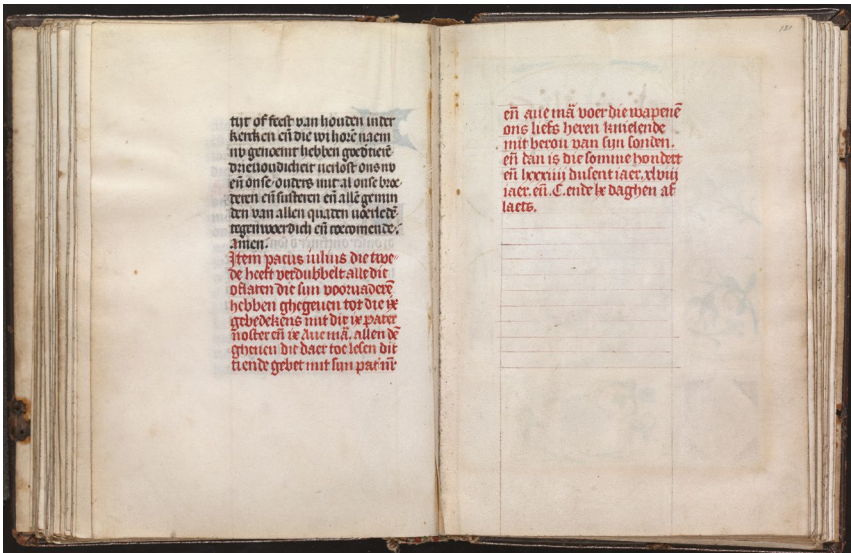 tijt of feest van houden in der
kerken en̄ die wi horē naem
nv genoemt hebben goedtierē
drievoudicheit verlost ons nv
en̄ onse ouders mit al onse broe
deren en̄ susteren en̄ allē gemin
den van allen quaden voerledē
tegenwoerdich en̄ toecomende.
amen.
Item paeus iulius die twe
de heeft verdubbelt alle dit
oflaten die sijn voorvaderē
hebben ghegeuen tot die ix
gebedekens mit die ix pater
noster en̄ ix Aue mā. allen dē
ghenen dit daer toe lesen dit
tiende gebet mit sijn pat nr̄
131
en̄ aue mā voer die wapenē
ons liefs heren knielende
mit berou van sijn sonden.
en̄ dan is die somme hondert
en̄ lxxxiiii dusent iaer. xlviii
iaer. en̄. C. ende lx daghen af
laets.